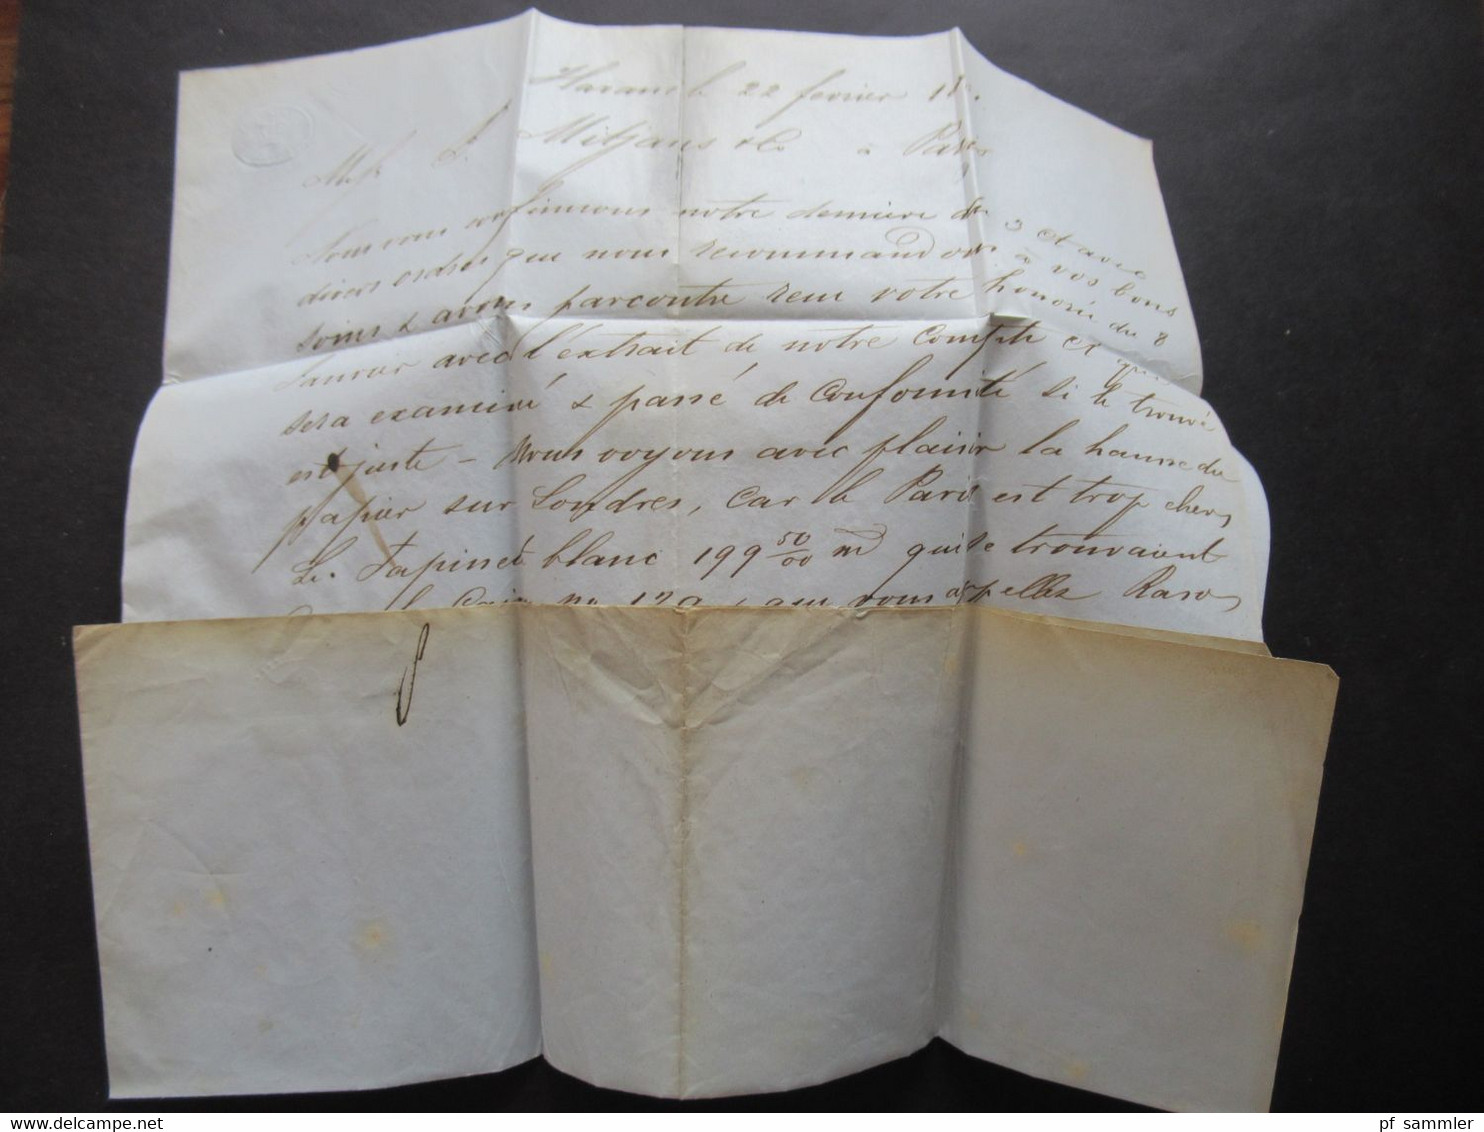 Havane le 22 fevrier 18
Miljans & Co à Paris
Nous vous confirmons notre dernière du 3 Ct avec
divers ordres que nous recommandons à vos bons
soins & avons parcontre recu votre honorée du 8
Janvier avec l'extrait de notre Compte et qui
sera examiné & passé de Conformité si le trouvé
est juste – Nous voyons avec plaisir la hausse du
papier sur Londres, Car le Paris est trop cher,
Le Tapinet blanc 199 50/00 m qui se trouvaient
Caisse no 129 & que vous appellez Raso,
pf sammler